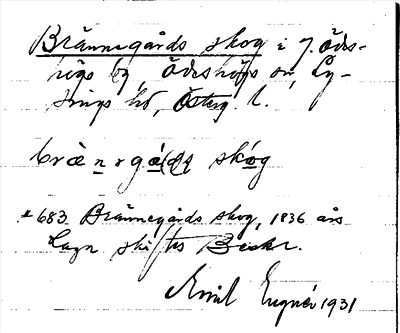 Brännegårds skog i 7. Ödes-
högs by, Ödeshögs sn, Ly-
sings hd, Österg. l.
brænnrgå(r)ḍṣ skóg
*683 Brännegårds skog, 1836 års
Laga skiftes Beskr.
Emil Lugnér 1931